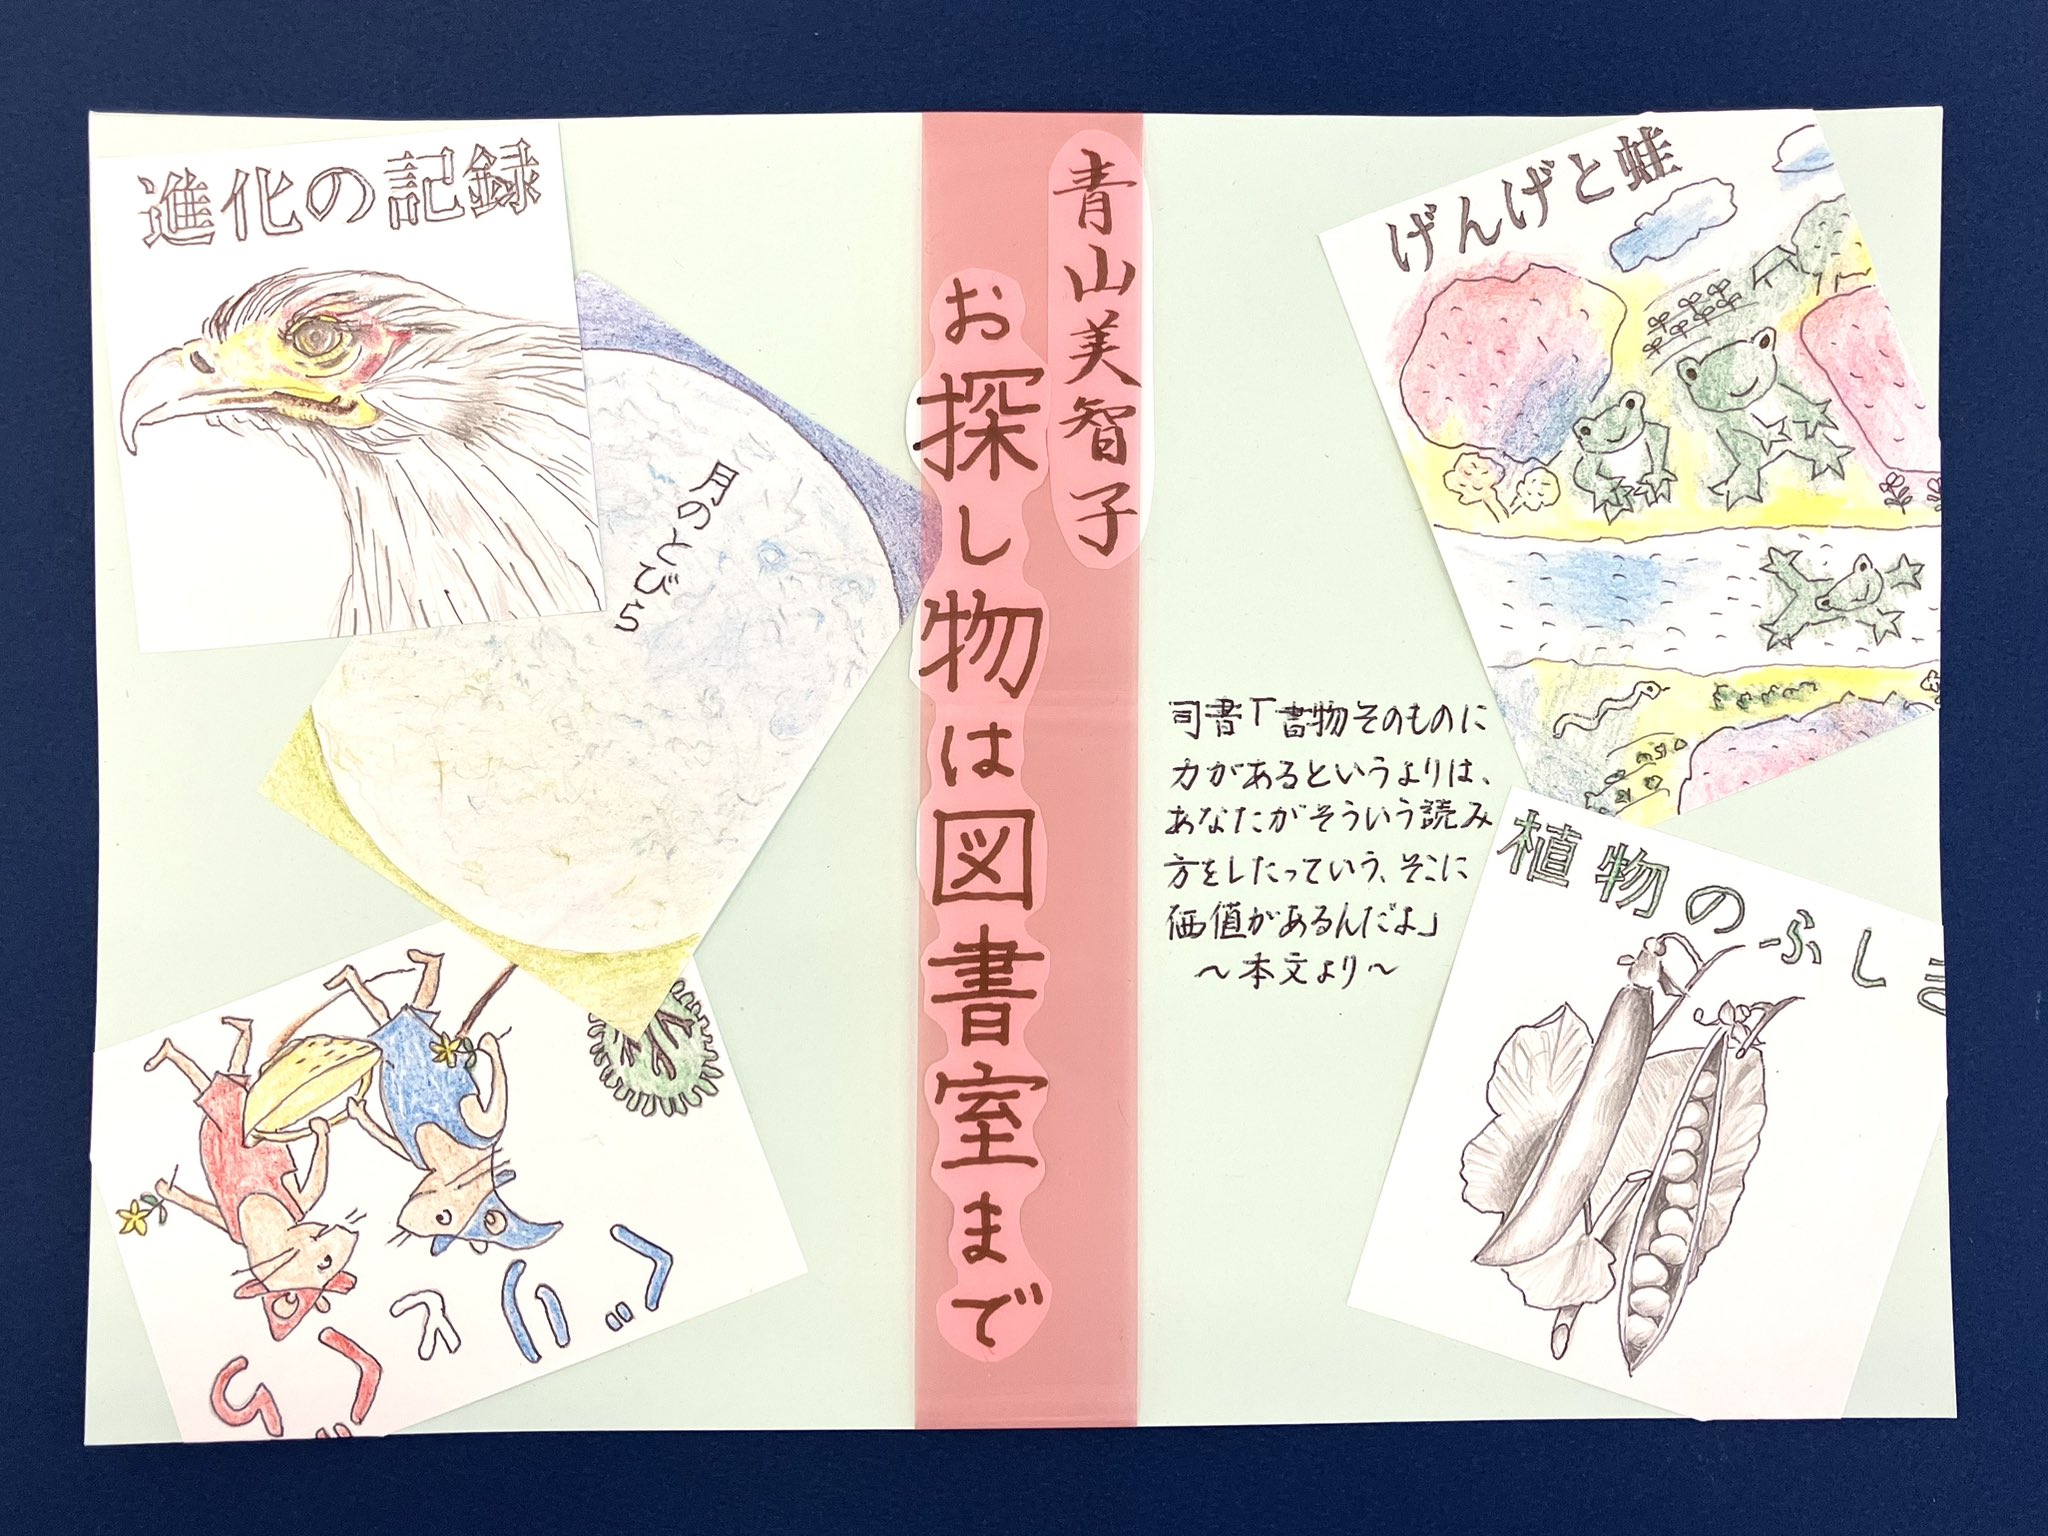 青山美智子
お探し物は図書室まで
進化の記録
月のとびら
げんげと蛙
司書「書物そのものに
力があるというよりは、
あなたがそういう読み
方をしたっていう、そこに
価値があるんだよ」
～本文より～
植物のふしぎ